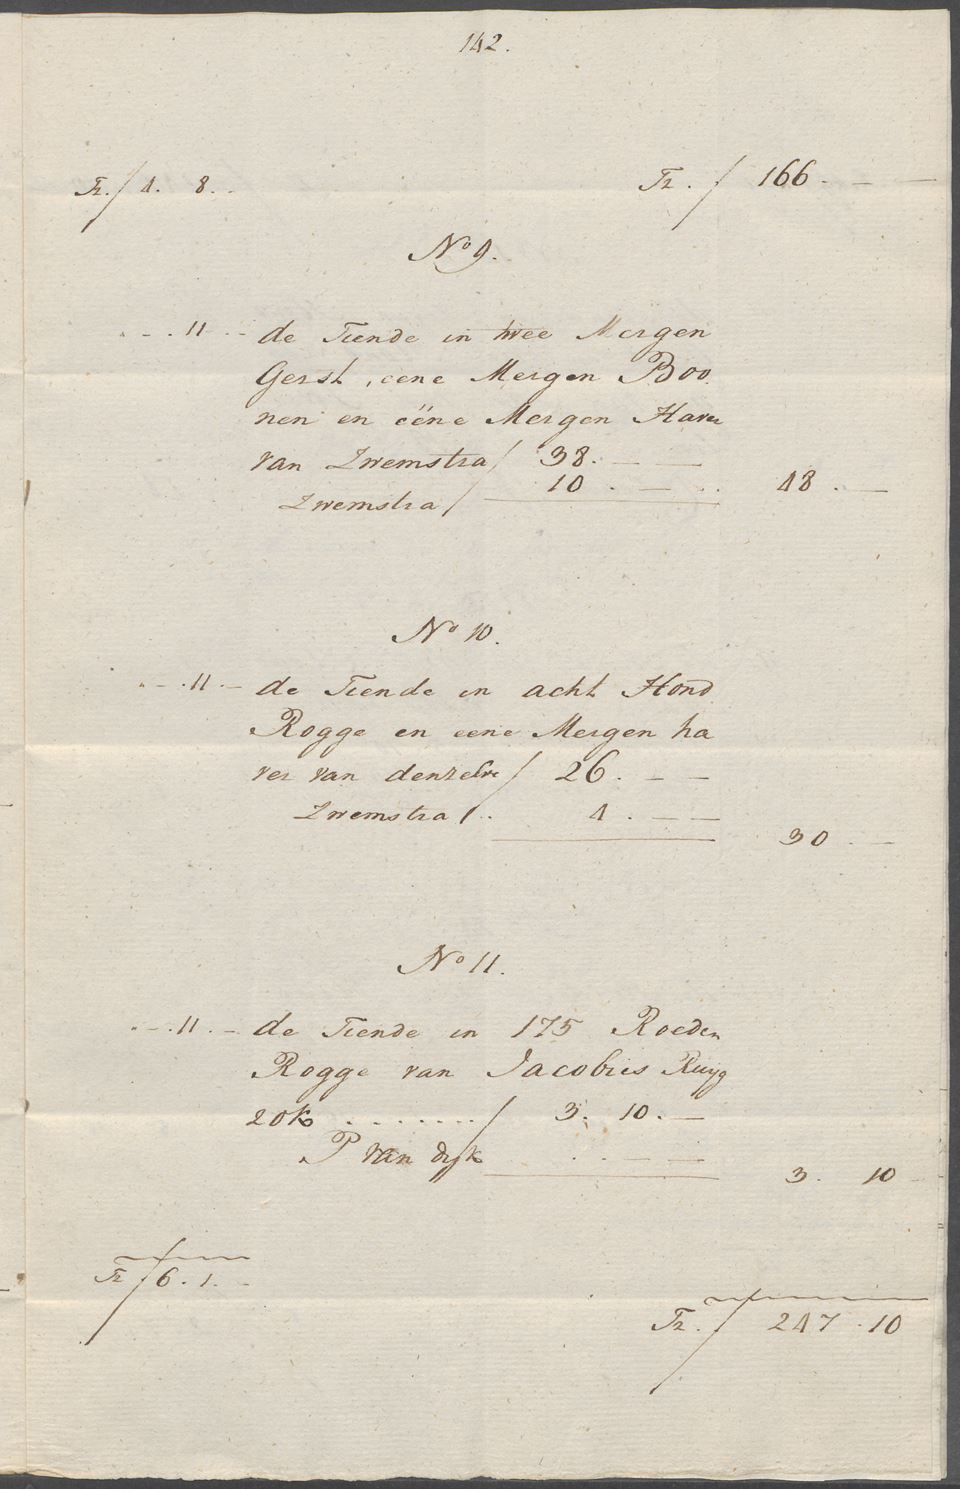 142.
Tr. ƒ 4. 8. -
Tr. ƒ 166. - -
No 9.
" - . 11 . - de Tiende in twee Mergen
Gerst, eene Mergen Boo
nen en eëne Mergen Haver
van Zwemstra ƒ 38. - -
Zwemstra ƒ 10. - - 48. -
No 10.
" - . 11 . - de Tiende in acht Hond
Rogge en eene Mergen ha
ver van denzelve ƒ 26. - -
Zwemstra ƒ . 4. - -
30. -
No 11.
" - . 11 . - de Tiende in 175 Roeden
Rogge van Jacobus Ruyg
rok . . . . . . . ƒ 3. 10. -
P van dyk . . - -
3. 10 -
Tr ƒ 6. 1. -
Tr. ƒ 247. 10